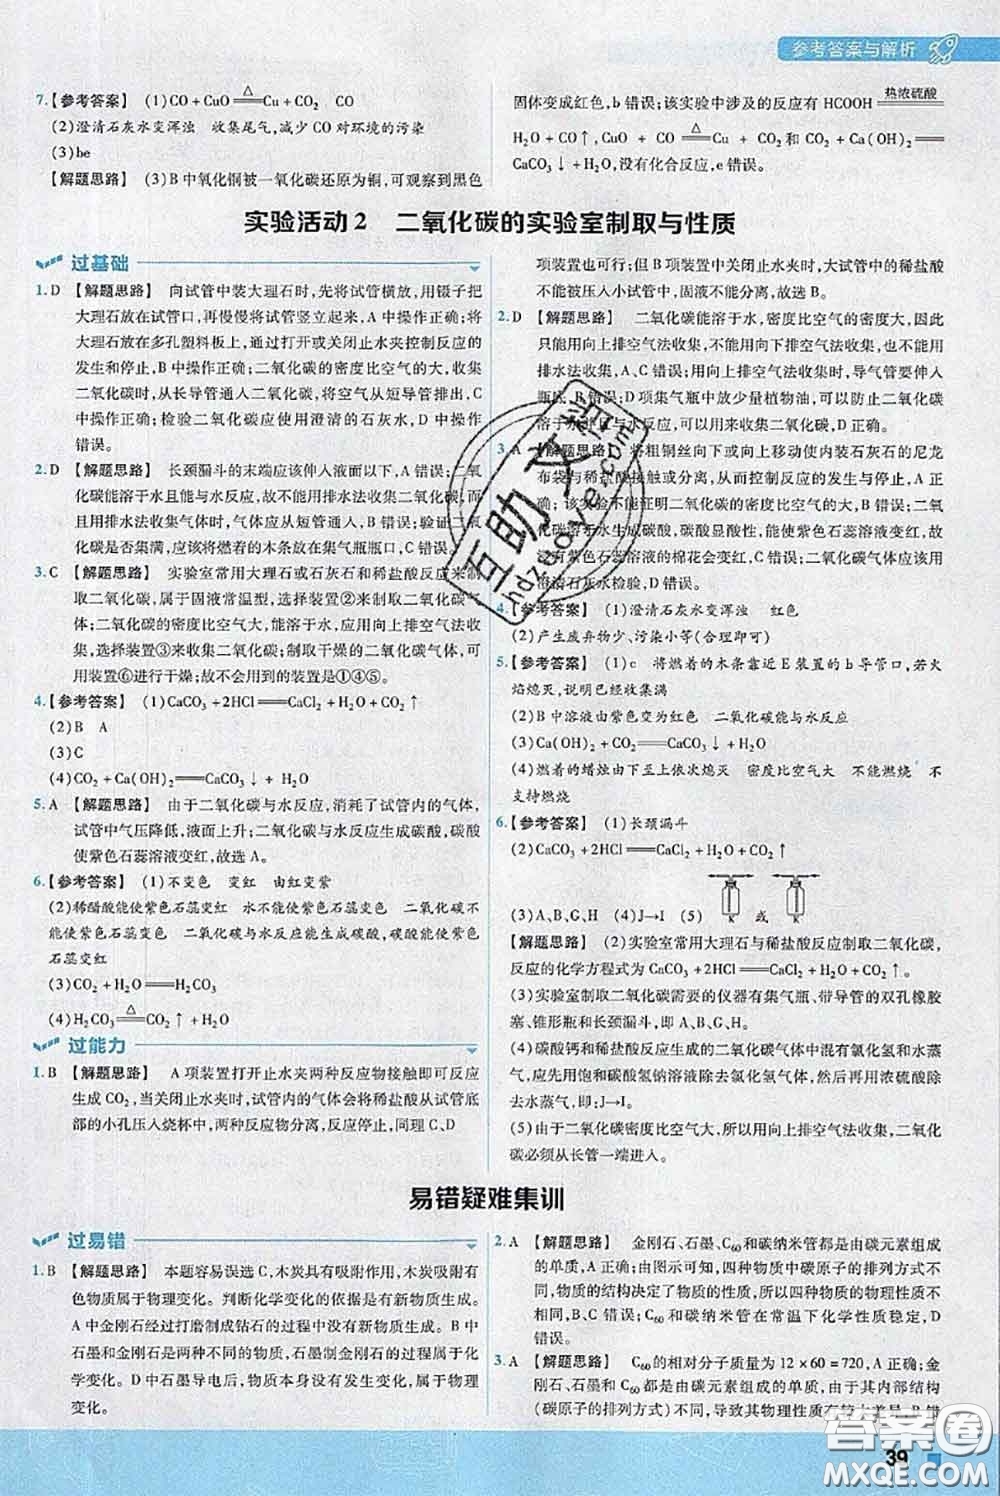 参考答案与解析
7.【参考答案】 (1)CO+CuO=△=Cu+CO₂ CO
(2)澄清石灰水变浑浊 收集尾气,减少 CO 对环境的污染
(3)be
【解题思路】 (3)B 中氧化铜被一氧化碳还原为铜,可观察到黑色
固体变成红色,b 错误;该实验中涉及的反应有 HCOOH =热浓硫酸=
H₂O + CO↑,CuO + CO =△= Cu + CO₂ 和 CO₂ + Ca(OH)₂ ══
CaCO₃↓+H₂O,没有化合反应,e 错误。
实验活动 2 二氧化碳的实验室制取与性质
过基础
1.D 【解题思路】 向试管中装大理石时,先将试管横放,用镊子把
大理石放在试管口,再慢慢将试管竖立起来,A 中操作正确;将
大理石放在多孔塑料板上,通过打开或关闭止水夹控制反应的
发生和停止,B 中操作正确;二氧化碳的密度比空气的大,收集
二氧化碳时,从长导管通入二氧化碳,将空气从短导管排出,C
中操作正确;检验二氧化碳应使用澄清的石灰水,D 中操作
错误。
2.D 【解题思路】 长颈漏斗的末端应该伸入液面以下,A 错误;二
氧化碳能溶于水且能与水反应,故不能用排水法收集二氧化碳,而
且用排水法收集气体时,气体应从短管通入,B 错误;验证二氧
化碳是否集满,应该将燃着的木条放在集气瓶瓶口,C 错误。
3.C 【解题思路】 实验室常用大理石或石灰石和稀盐酸反应来制
取二氧化碳,属于固液常温型,选择装置②来制取二氧化碳;二
氧化碳的密度比空气大,能溶于水,应用向上排空气法收
集,选择装置③来收集二氧化碳;制取干燥的二氧化碳时,可
用装置⑥进行干燥;故不会用到的装置是①④⑤。
4.【参考答案】 (1)CaCO₃+2HCl══CaCl₂+H₂O+CO₂↑
(2)B A
(3)C
(4)CO₂+Ca(OH)₂══CaCO₃↓+ H₂O
5.A 【解题思路】 由于二氧化碳与水反应,消耗了试管内的气体,
试管中气压降低,液面上升;二氧化碳与水反应生成碳酸,碳酸
使紫色石蕊溶液变红,故选 A。
6.【参考答案】 (1)不变色 变红 由红变紫
(2)稀醋酸能使紫色石蕊变红 水不能使紫色石蕊变红 二氧化碳不
能使紫色石蕊变红 二氧化碳与水反应能生成碳酸,碳酸能使紫色
石蕊变红
(3)CO₂+H₂O══H₂CO₃
(4)H₂CO₃=△=CO₂↑+H₂O
过能力
1.B 【解题思路】 A 项装置打开止水夹两种反应物接触即可反应
生成 CO₂,当关闭止水夹时,试管内的气体会将稀盐酸从试管底
部的小孔压入烧杯中,两种反应物分离,反应停止,同理 C、D
项装置也可行;但 B 项装置中关闭止水夹时,大试管中的稀盐酸
不能被压入小试管中,固液不能分离,故选 B。
2.D 【解题思路】 二氧化碳能溶于水,密度比空气的密度大,因此
只能用向上排空气法收集,不能用向下排空气法收集,也不能用
排水法收集,A、C 错误;用向上排空气法收集时,导气管要伸入
瓶底,B 错误;D 项集气瓶中放少量植物油,可以防止二氧化碳
溶于水并且与水反应,可以用来收集二氧化碳,D 正确。
3.A 【解题思路】 将粗铜丝向下或向上移动使内装石灰石的尼龙
布袋与稀盐酸接触或分离,从而控制反应的发生与停止,A 正
确;该实验不能证明二氧化碳的密度比空气的大,B 错误;二氧
化碳溶于水生成碳酸,碳酸显酸性,能使紫色石蕊溶液变红,故
浸有紫色石蕊溶液的棉花会变红,C 错误;二氧化碳气体应该用
澄清石灰水检验,D 错误。
4.【参考答案】 (1)澄清石灰水变浑浊 红色
(2)产生废弃物少、污染小等(合理即可)
5.【参考答案】 (1)c 将燃着的木条靠近 E 装置的 b 导管口,若火
焰熄灭,说明已经收集满
(2)B 中溶液由紫色变为红色 二氧化碳能与水反应
(3)Ca(OH)₂+CO₂══CaCO₃↓+H₂O
(4)燃着的蜡烛由下至上依次熄灭 密度比空气大 不能燃烧 不
支持燃烧
6.【参考答案】 (1)长颈漏斗
(2)CaCO₃+2HCl══CaCl₂+H₂O+CO₂↑
(3)A、B、G、H (4)J→I (5) K 或 K
【解题思路】 (2)实验室常用大理石与稀盐酸反应制取二氧化碳,
反应的化学方程式为 CaCO₃+2HCl══CaCl₂+H₂O+CO₂↑。
(3)实验室制取二氧化碳需要的仪器有集气瓶、带导管的双孔橡胶
塞、锥形瓶和长颈漏斗,即 A、B、G、H。
(4)碳酸钙和稀盐酸反应生成的二氧化碳气体中混有氯化氢和水蒸
气,应先用饱和碳酸氢钠溶液除去氯化氢气体,然后再用浓硫酸除去
水蒸气,即:J→I。
(5)由于二氧化碳密度比空气大,所以用向上排空气法收集,二氧化
碳必须从长管一端进入。
易错疑难集训
过易错
1.B 【解题思路】 本题容易误选 C,木炭具有吸附作用,木炭吸附有
色物质属于物理变化。判断化学变化的依据是有新物质生成。
A 中金刚石经过打磨制成钻石的过程中没有新物质生成。B 中
石墨和金刚石是两种不同的物质,石墨制金刚石的过程属于化
学变化。D 中石墨导电后,石墨本身没有发生变化,属于物理
变化。
2.A 【解题思路】 金刚石、石墨、C₆₀和碳纳米管都是由碳元素组成
的单质,A 正确;由图示可知,四种物质中碳原子的排列方式不
同,物质的结构决定了物质的性质,所以四种物质的物理性质存在
差异,B、C 错误;C₆₀和碳纳米管在常温下化学性质稳定,D
错误。
3.A 【解题思路】 C₆₀的相对分子质量为 12×60=720,A 正确;金
刚石、石墨和 C₆₀都是由碳元素组成的单质,由于其内部结构
(碳原子的排列方式)不同,导致其物理性质有较大差异,B 错
39
互助文档
hdzgove.com
答案圈
MXQE.COM